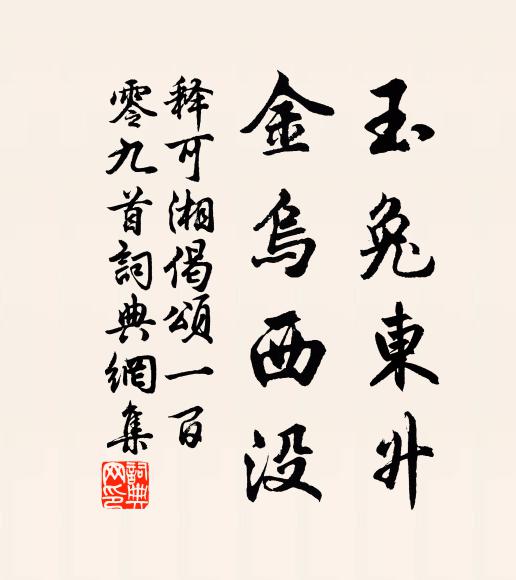 玉兔東升
金烏西没
释可湘偈頌一百
零九首詞典網集
詞典網印